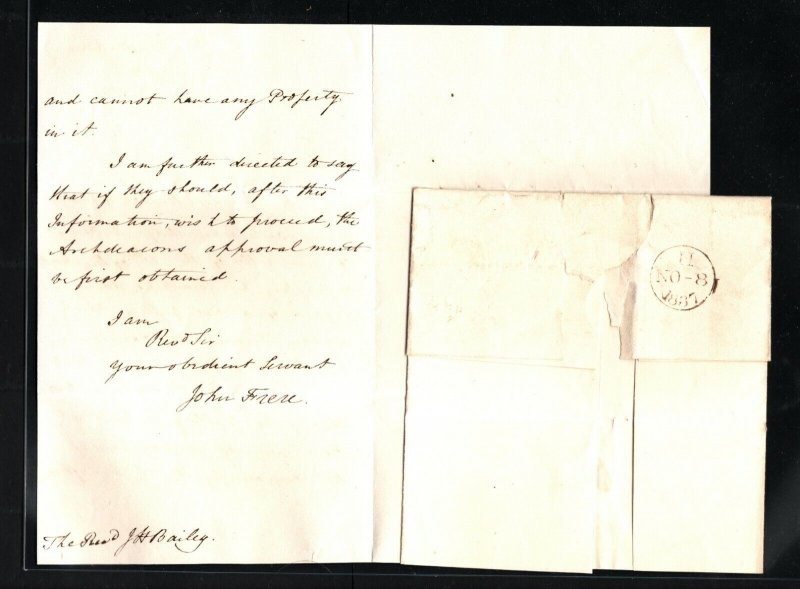 and cannot have any Property
in it.
I am further directed to say
that if they should, after this
Information, wish to proceed, the
Archdeacons approval must
be first obtained.
I am
Revd Sir
your obedient Servant
John Frere.
The Revd J H Bailey.
11
NO-8
1837